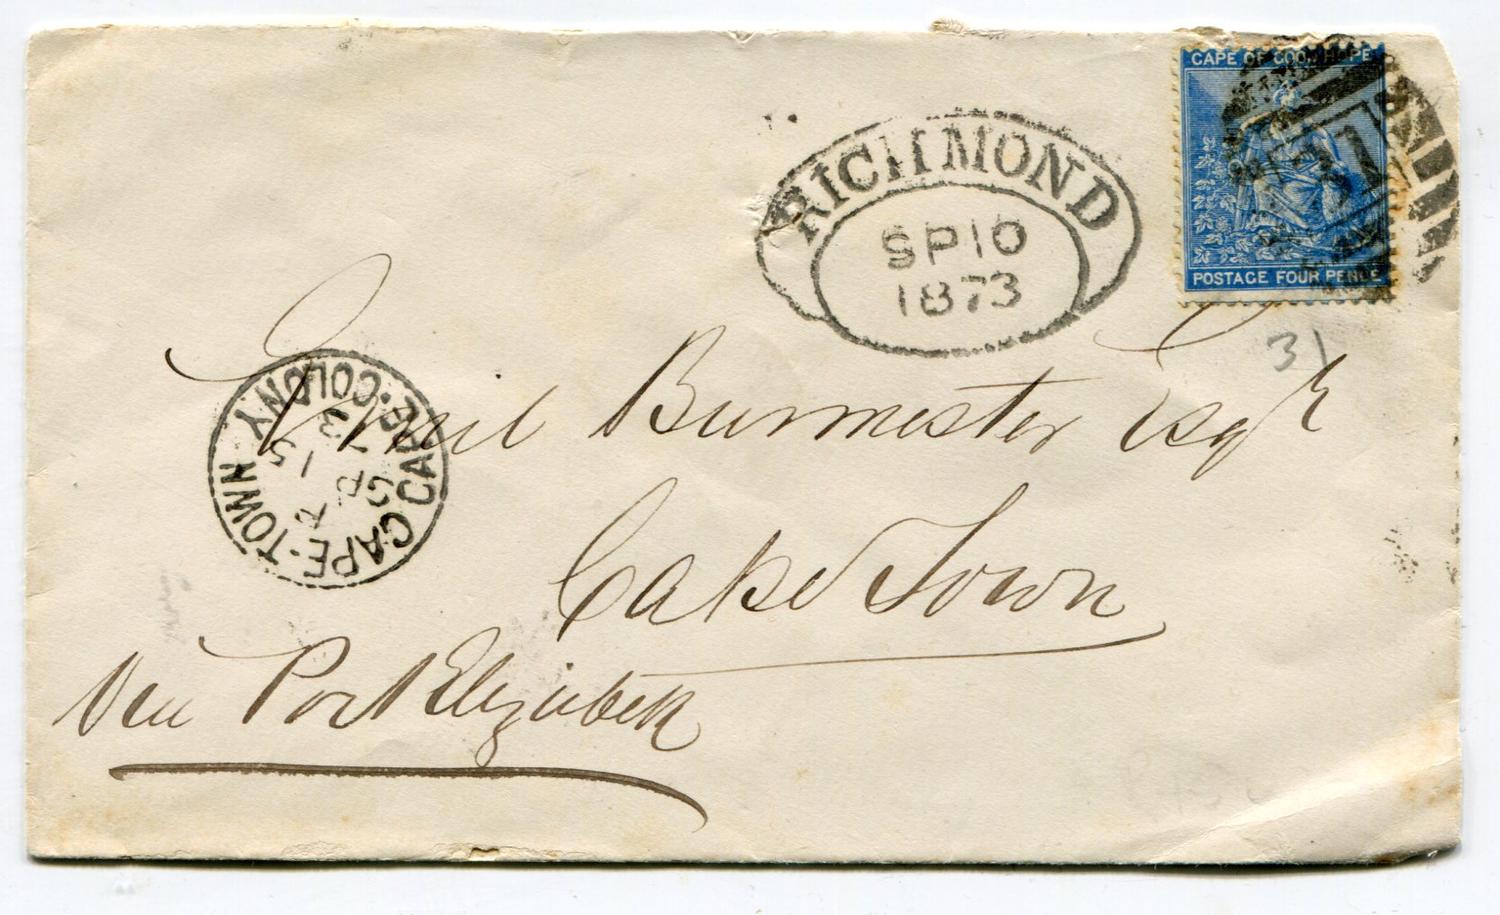 CAPE OF GOOD HOPE
31
POSTAGE FOUR PENCE
RICHMOND
SP 10
1873
31
Emil Burmester Esqr
Cape Town
CAPE·TOWN CAPE·COLONY
SP 15
73
Via Port Elizabeth